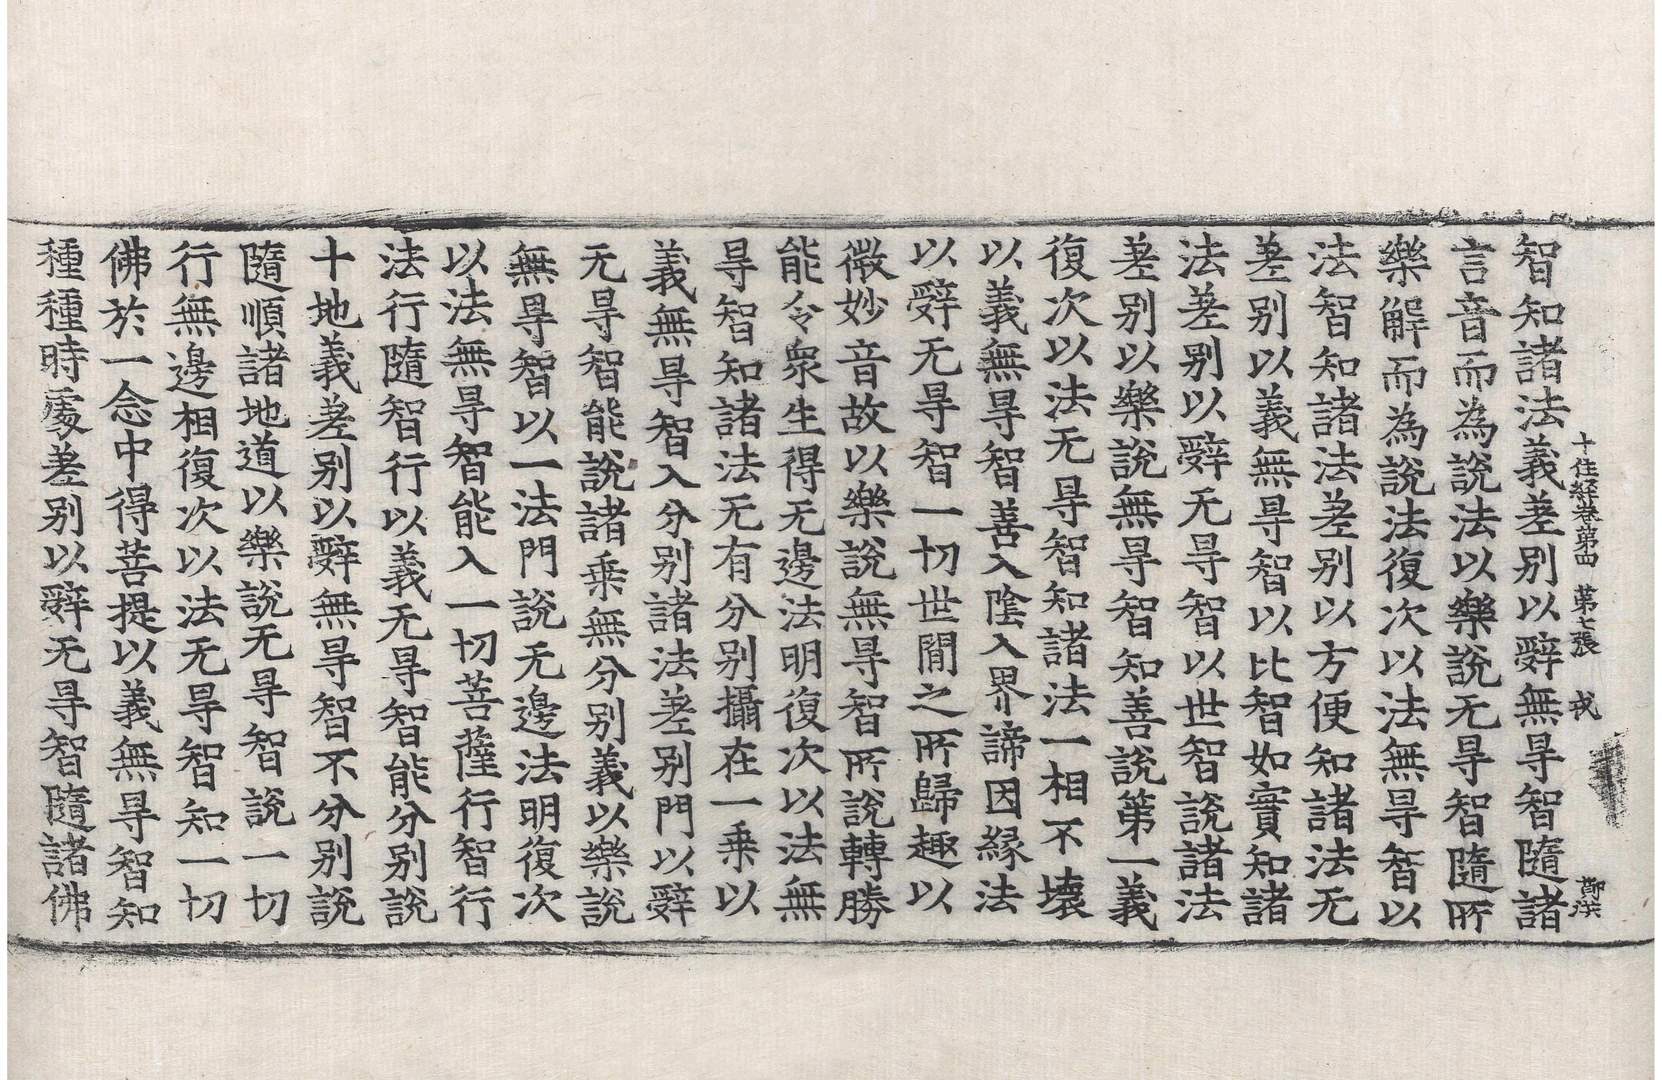 十住経卷第四 第七張 戎
智知諸法義差别以辭無㝵智隨諸
言音而為說法以樂說无㝵智隨所
樂解而為說法復次以法無㝵智以
法智知諸法差别以方便知諸法无
差别以義無㝵智以比智如實知諸
法差别以辭无㝵智以世智說諸法
差别以樂說無㝵智知善說第一義
復次以法无㝵智知諸法一相不壞
以義無㝵智善入陰入界諦因緣法
以辭无㝵智一切世間之所歸趣以
微妙音故以樂說無㝵智所說轉勝
能令衆生得无邊法明復次以法無
㝵智知諸法无有分别攝在一乘以
義無㝵智入分别諸法差别門以辭
无㝵智能說諸乘無分别義以樂說
無㝵智以一法門說无邊法明復次
以法無㝵智能入一切菩薩行智行
法行隨智行以義无㝵智能分别說
十地義差别以辭無㝵智不分别說
隨順諸地道以樂說无㝵智說一切
行無邊相復次以法无㝵智知一切
佛於一念中得菩提以義無㝵智知
種種時處差别以辭无㝵智隨諸佛